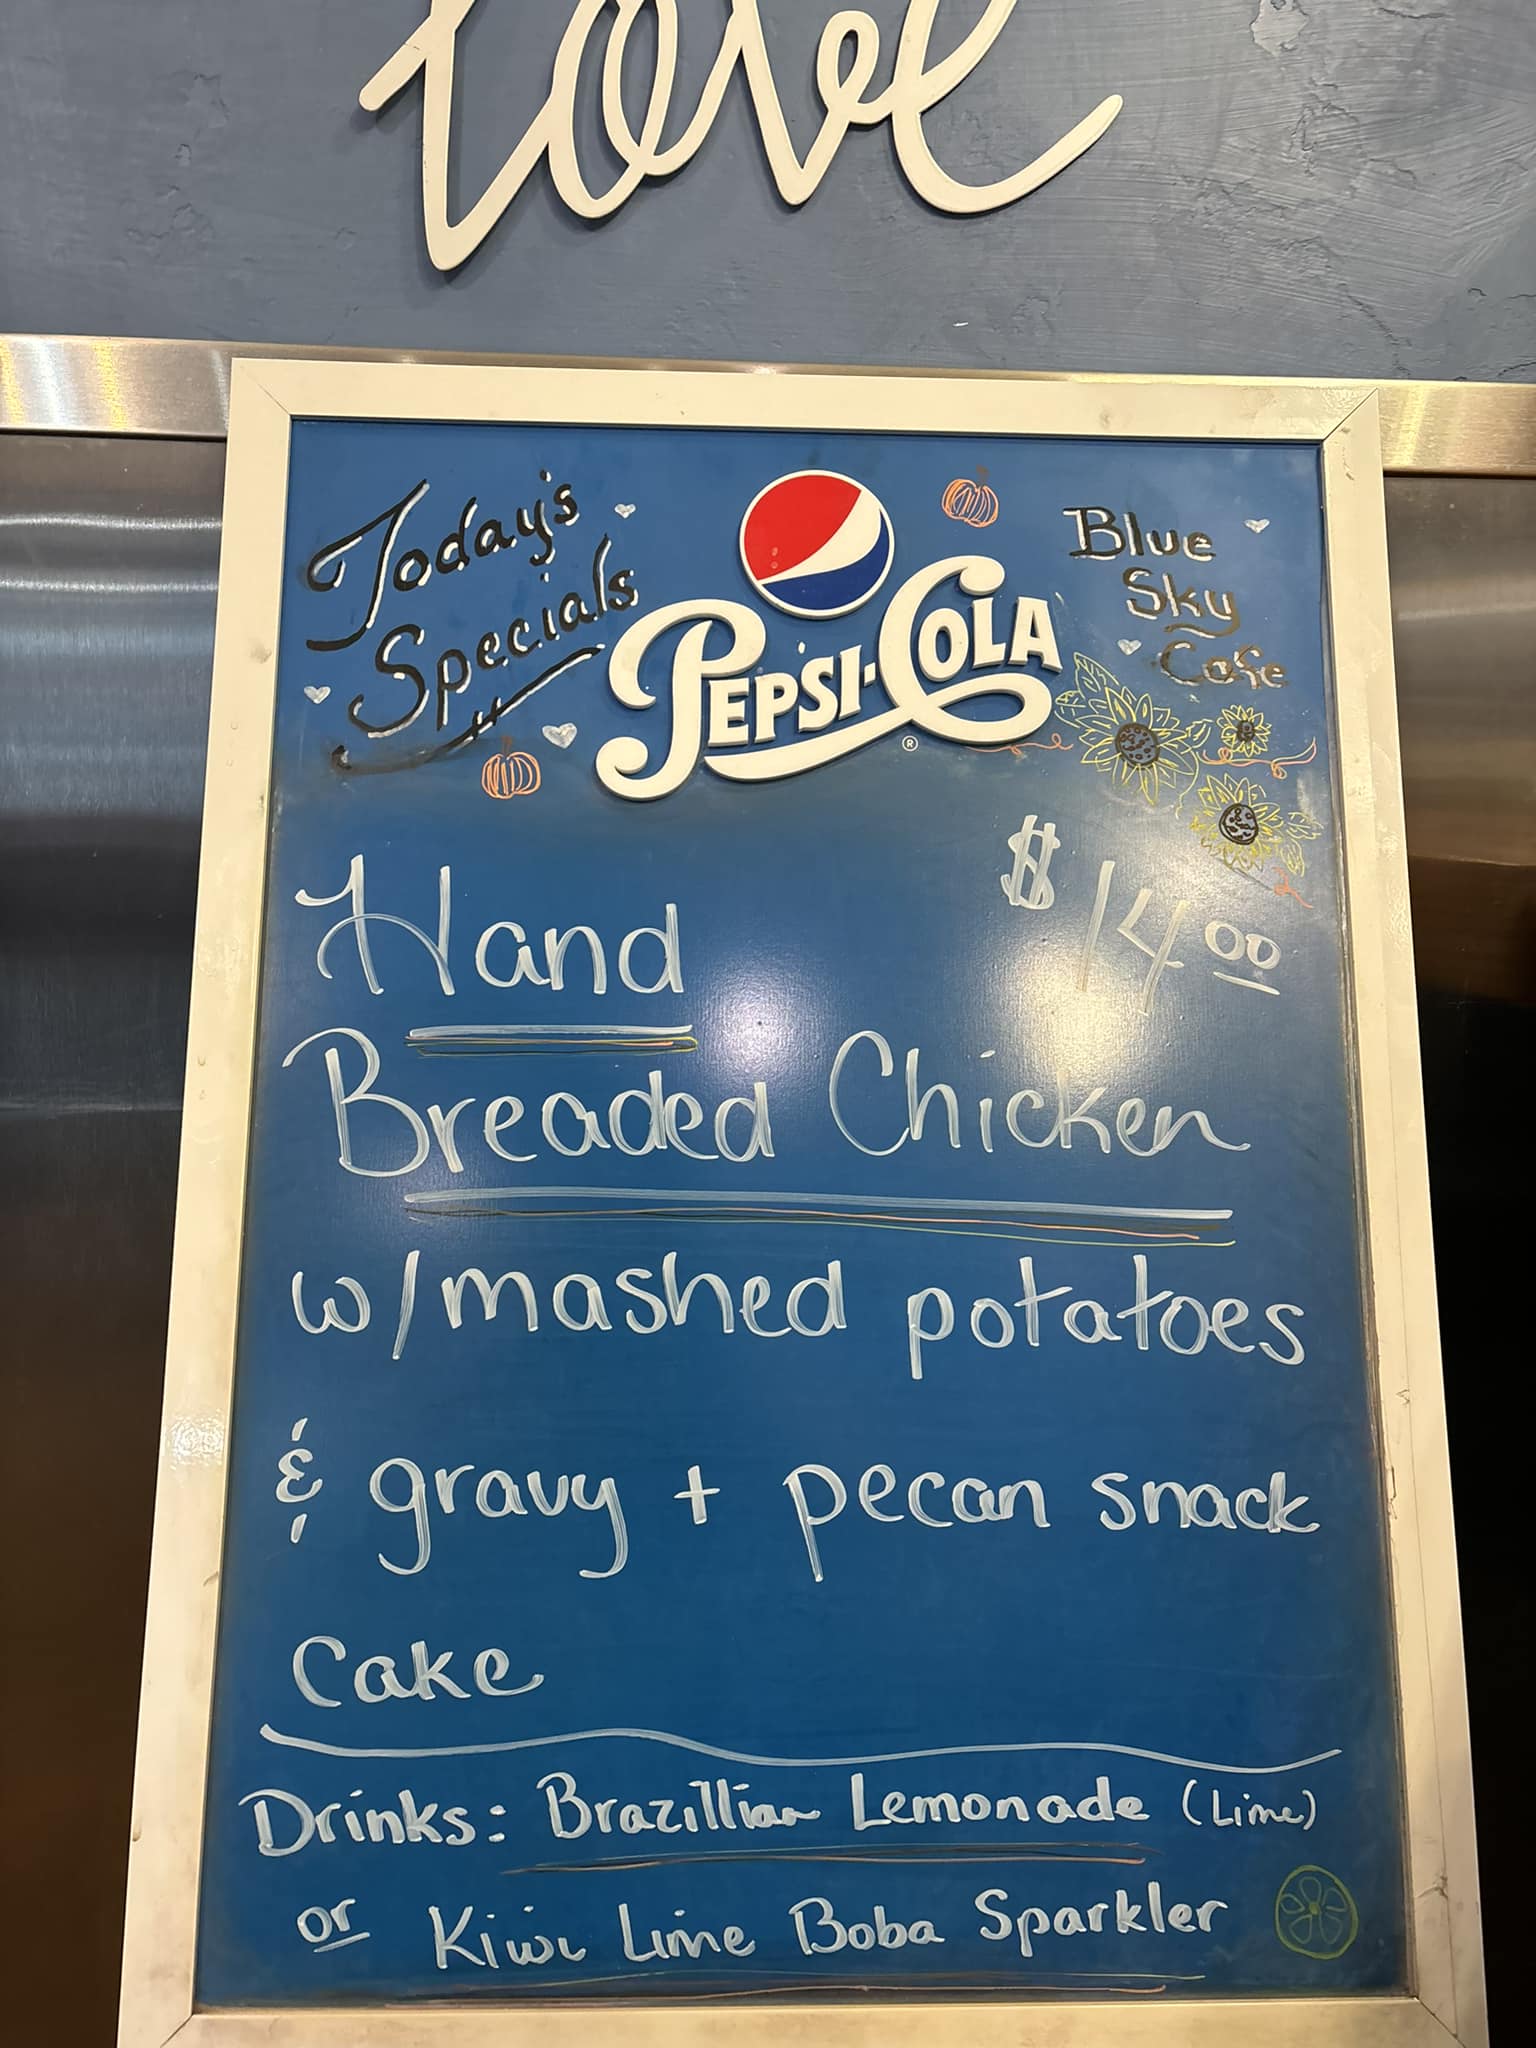 love
Today's
Specials
PEPSI-COLA
®
Blue
Sky
Cafe
Hand
$14.00
Breaded Chicken
w/mashed potatoes
& gravy + pecan snack
Cake
Drinks: Brazillian Lemonade (Lime)
or Kiwi Lime Boba Sparkler